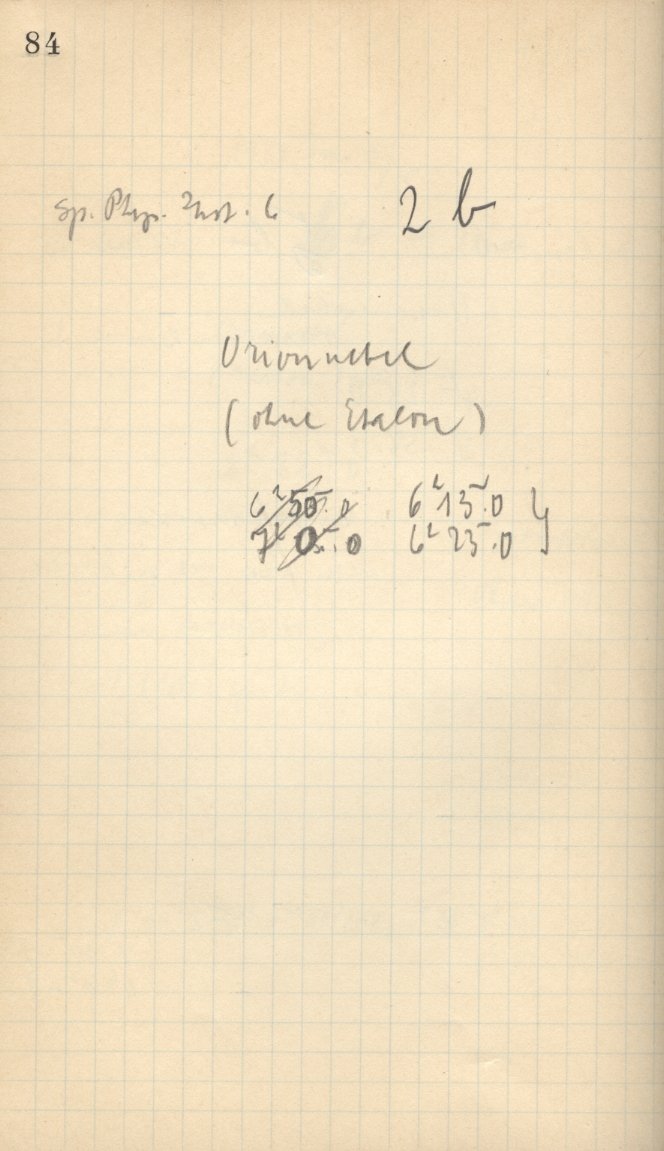 84
Sp. Phys. Inst. 6 2 b
Orionnebel
(ohne Etalon)
6ʰ 50.0 6ʰ 15.0
7ʰ 05.0 6ʰ 25.0